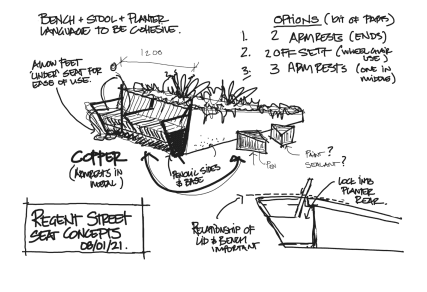 BENCH + STOOL + PLANTER
LANGUAGE TO BE COHESIVE.
OPTIONS (KIT OF PARTS)
1. 2 ARMRESTS (ENDS)
2. 2 OFF SETT (WHEELCHAIR
USE)
3. 3 ARMRESTS (ONE IN
MIDDLE)
1200
ALLOW FEET
UNDER SEAT FOR
EASE OF USE.
COPPER
(ARMRESTS IN
METAL)
SIDES
& BASE
PAINT?
SEALANT?
LOCK INTO
PLANTER
REAR.
RELATIONSHIP OF
LID & BENCH
IMPORTANT
REGENT STREET
SEAT CONCEPTS
08/01/21.